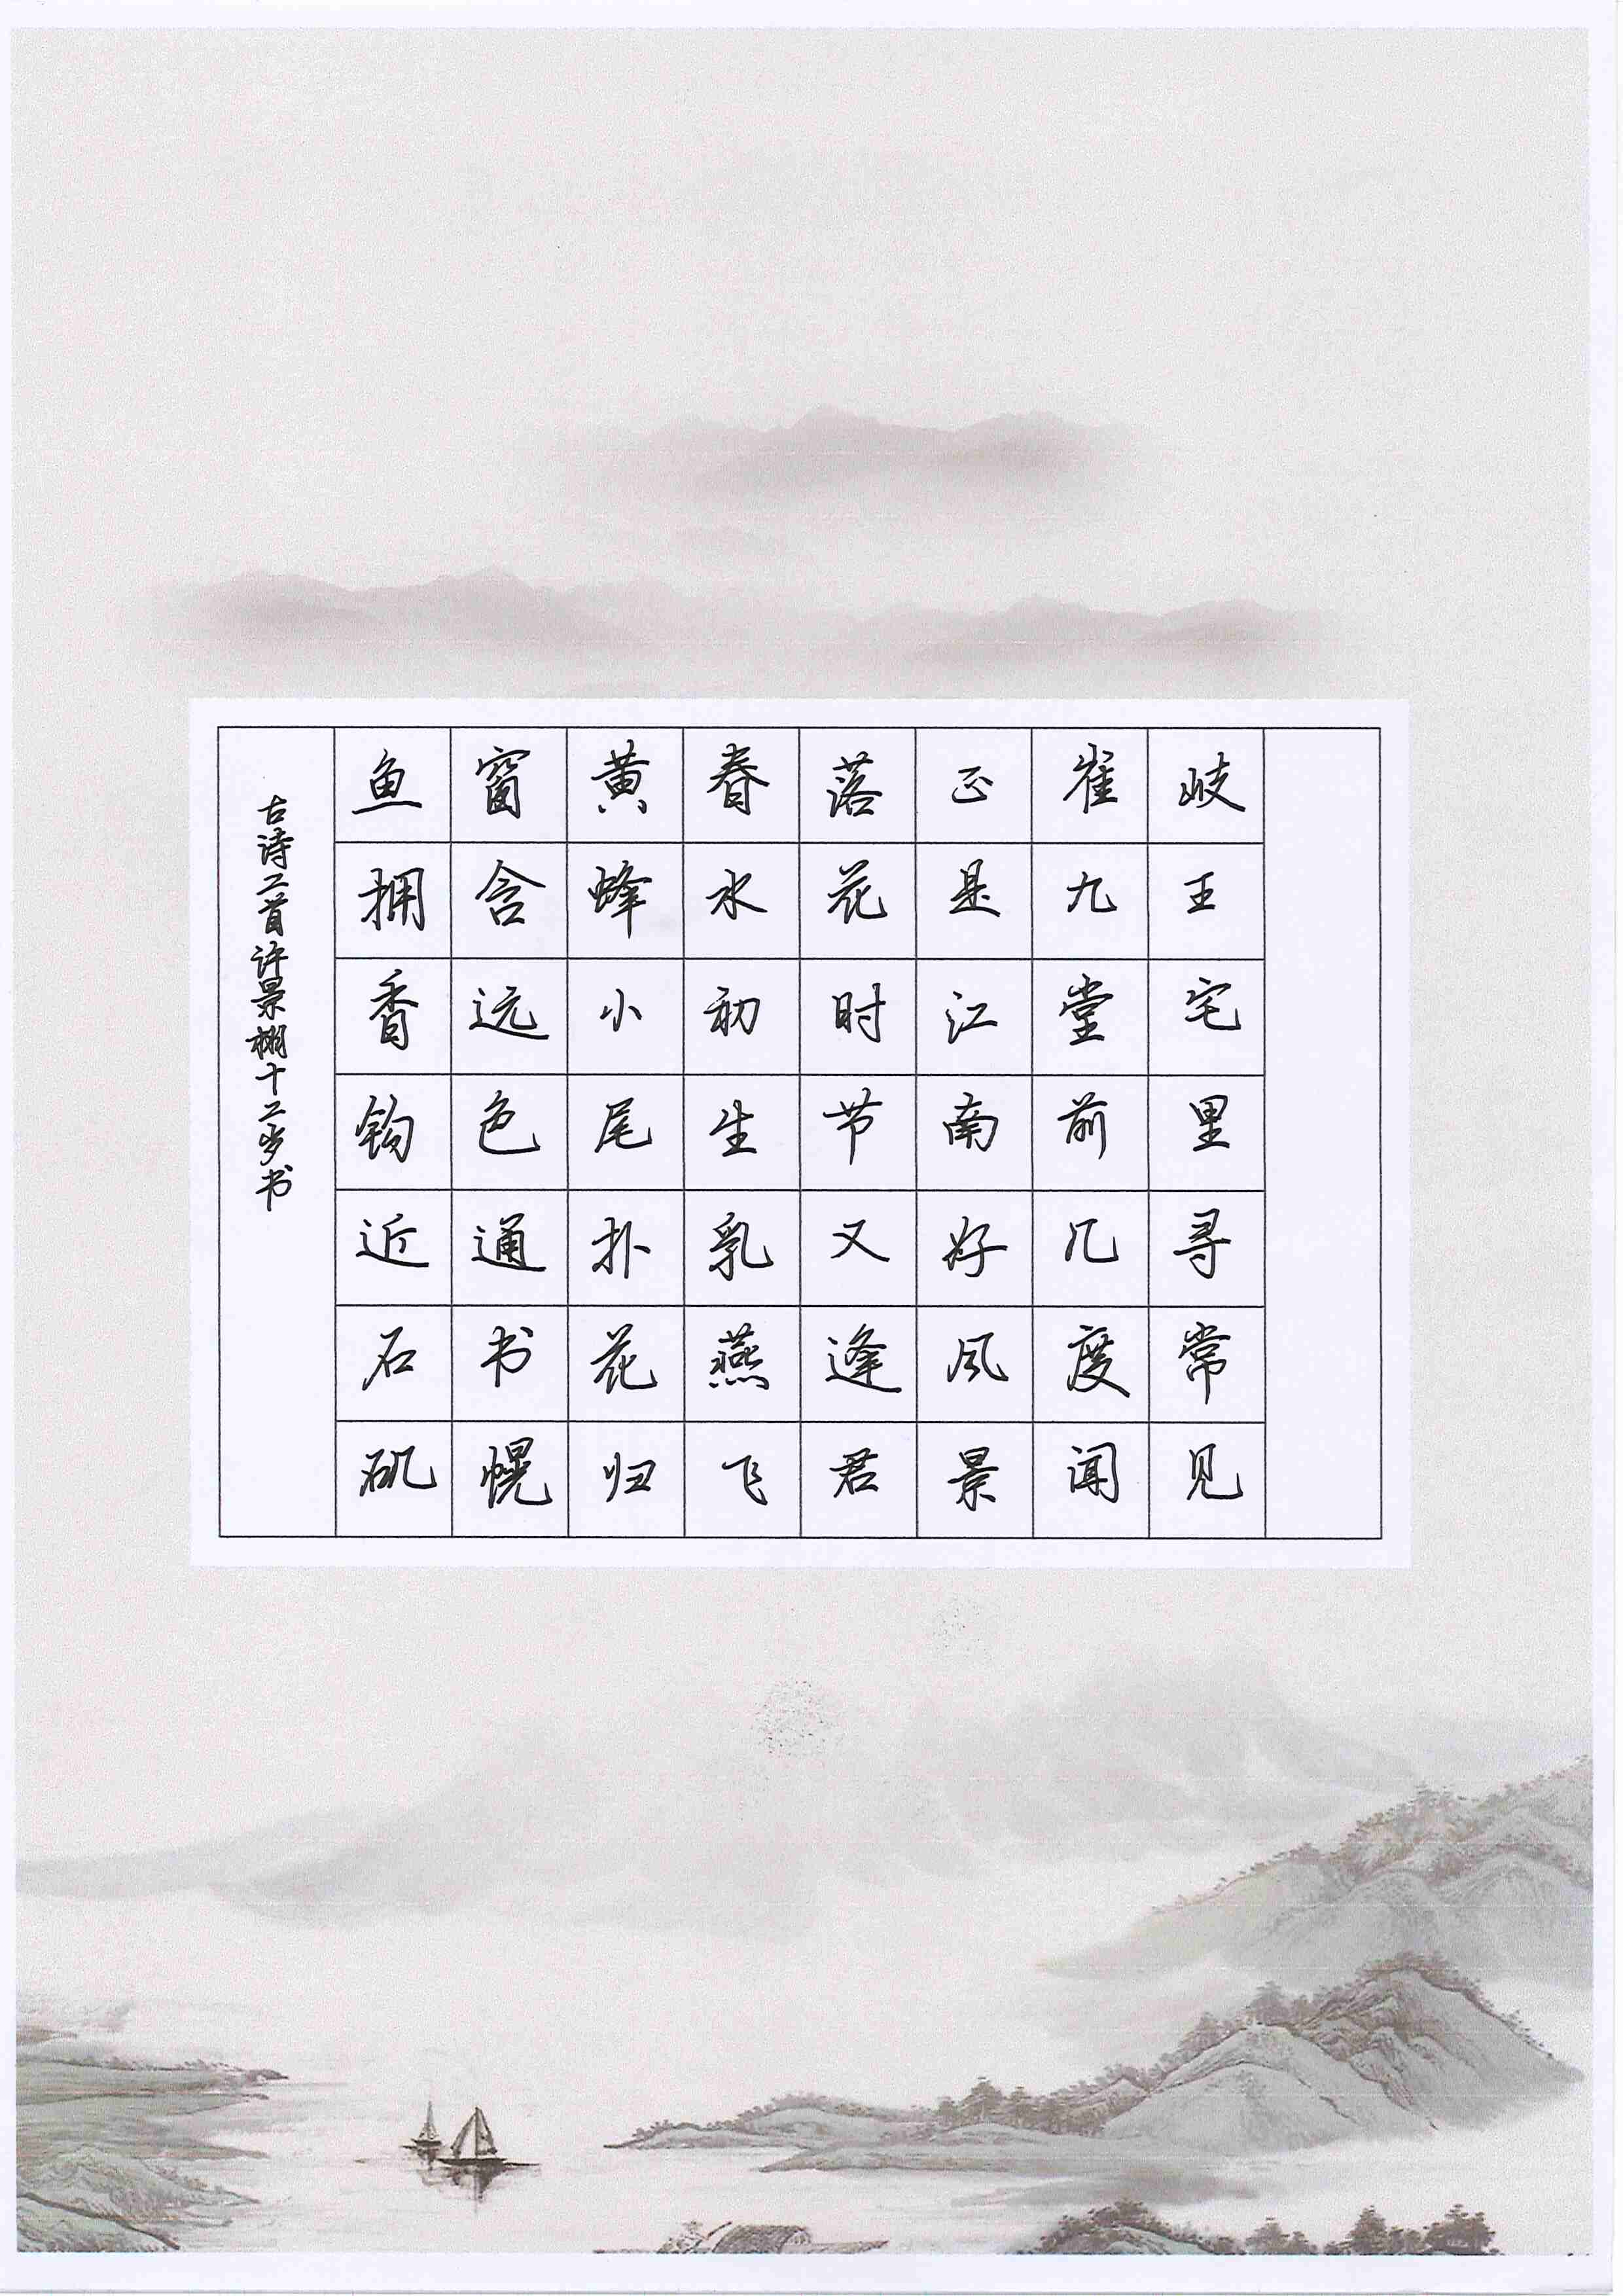 岐王宅里寻常见
崔九堂前几度闻
正是江南好风景
落花时节又逢君
春水初生乳燕飞
黄蜂小尾扑花归
窗含远色通书幌
鱼拥香钩近石矶
古诗二首许景棚十二岁书